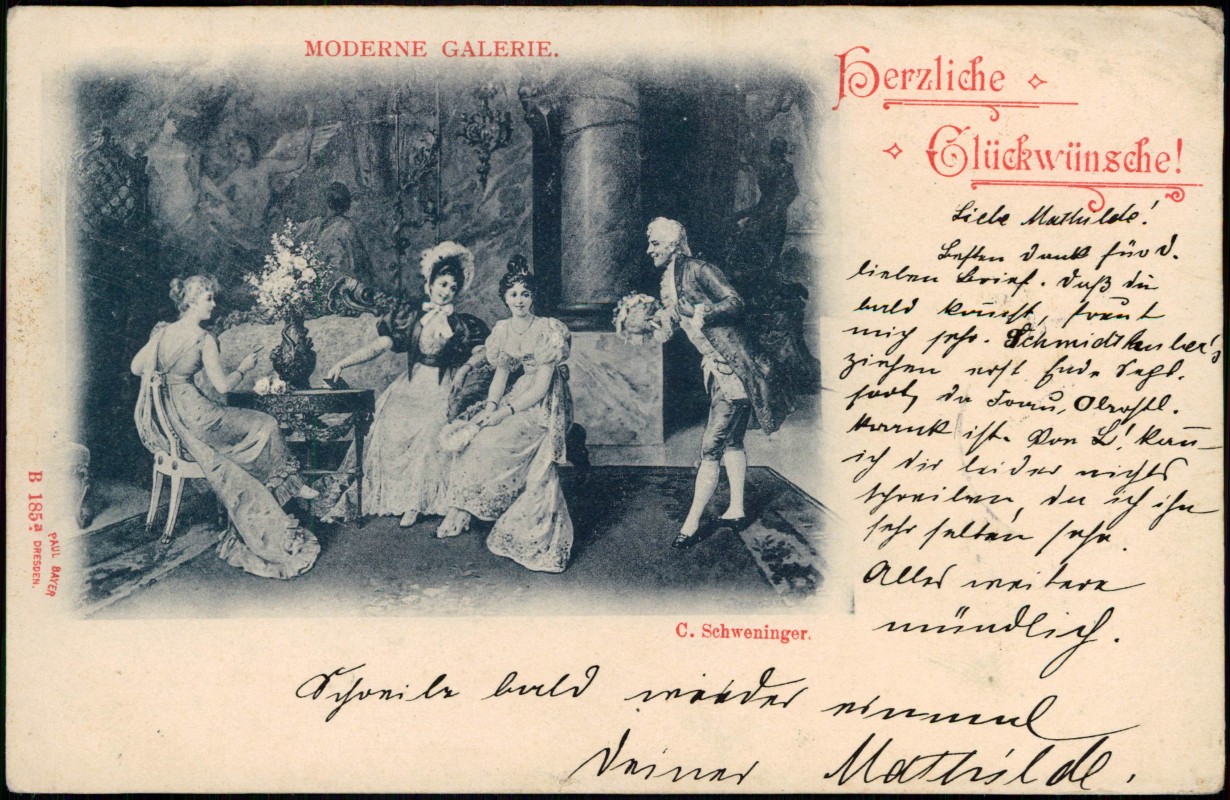 MODERNE GALERIE.
Herzliche
Glückwünsche!
Liebe Mathilde!
Besten Dank für d.
lieben Brief. Daß du
bald kommst, freut
mich sehr. Schmidthuber's
ziehen erst Ende Sept.
fort, da Frau
krank ist. Von L! kann
ich dir leider nichts
schreiben, da ich ihn
sehr selten sehe.
Alles weitere
mündlich.
C. Schweninger.
B 185a.
PAUL BAYER
DRESDEN.
Schreibe bald wieder einmal
Deiner Mathilde.